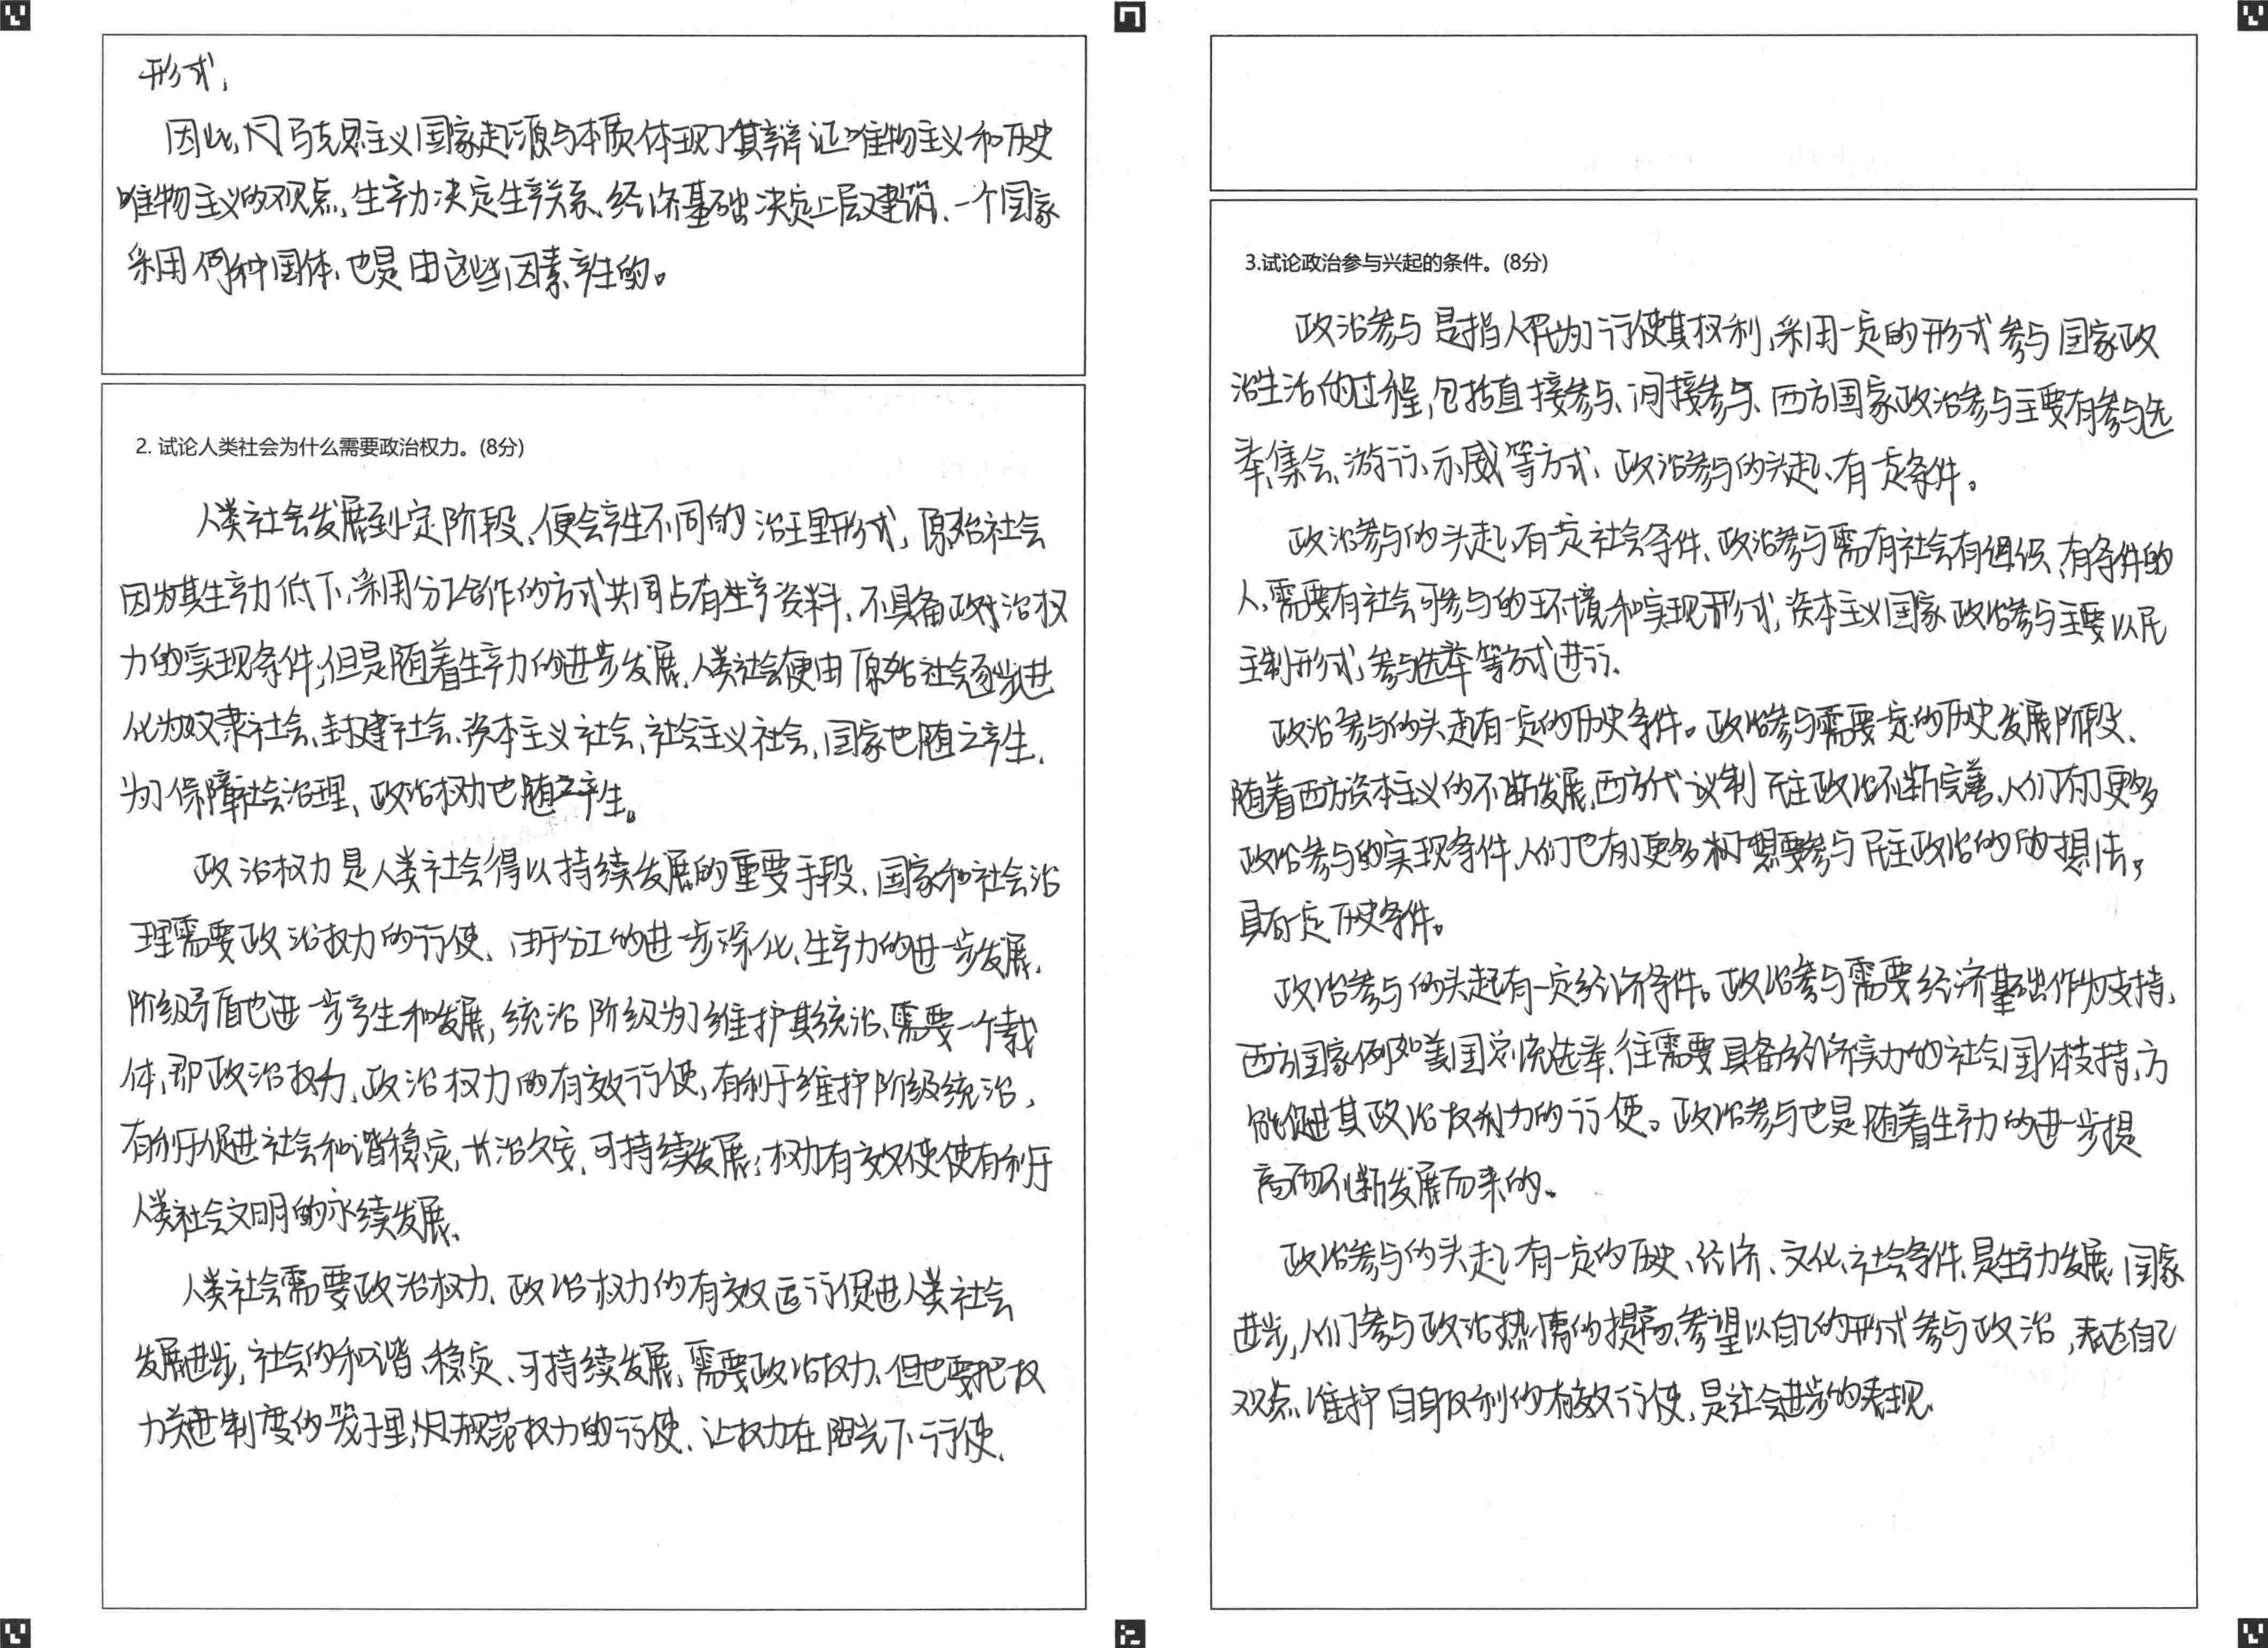 形式,
因此,马克思主义国家起源与本质体现了其辩证唯物主义和历史
唯物主义的观点,生产力决定生产关系、经济基础决定上层建筑、一个国家
采用何种国体、也是由这些因素产生的。
2. 试论人类社会为什么需要政治权力。(8分)
人类社会发展到一定阶段、便会产生不同的治理形式,原始社会
因为其生产力低下,采用分工合作的方式共同占有生产资料、不具备政治权
力的实现条件,但是随着生产力的进步发展,人类社会便由原始社会逐步进
化为奴隶社会、封建社会、资本主义社会、社会主义社会,国家也随之产生,
为了保障社会治理、政治权力也随之产生。
政治权力是人类社会得以持续发展的重要手段、国家和社会治
理需要政治权力的行使、由于分工的进一步深化、生产力的进一步发展,
阶级矛盾也进一步产生和发展,统治阶级为了维护其统治、需要一个载
体,即政治权力,政治权力的有效行使,有利于维护阶级统治,
有利于促进社会和谐稳定,长治久安,可持续发展;权力有效使使有利于
人类社会文明的永续发展、
人类社会需要政治权力、政治权力的有效运行促进人类社会
发展进步,社会的和谐、稳定、可持续发展,需要政治权力、但也要把权
力关进制度的笼子里,规范权力的行使、让权力在阳光下行使、
3.试论政治参与兴起的条件。(8分)
政治参与是指人民为了行使其权利,采用一定的形式参与国家政
治生活的过程,包括直接参与、间接参与、西方国家政治参与主要有参与选
举、集会、游行、示威等方式、政治参与的兴起、有一定条件。
政治参与的兴起,有一定社会条件、政治参与需有社会有组织、有条件的
人,需要有社会可参与的环境和实现形式,资本主义国家政治参与主要以民
主制形式,参与选举等方式进行、
政治参与的兴起有一定的历史条件。政治参与需要一定的历史发展阶段、
随着西方资本主义的不断发展,西方代议制民主政治不断完善、人们有了更多
政治参与的实现条件,人们也有了更多想要参与民主政治的的想法,
具有一定历史条件。
政治参与的兴起有一定经济条件。政治参与需要经济基础作为支持,
西方国家例如美国总统选举,往需要具备经济实力的社会团体支持,方
能促进其政治权利力的行使。政治参与也是随着生产力的进一步提
高而不断发展而来的。
政治参与的兴起,有一定的历史、经济、文化、社会条件,是生产力发展,国家
进步,人们参与政治热情的提高,希望以自己的形式参与政治,表达自己
观点,维护自身权利的有效行使,是社会进步的表现、